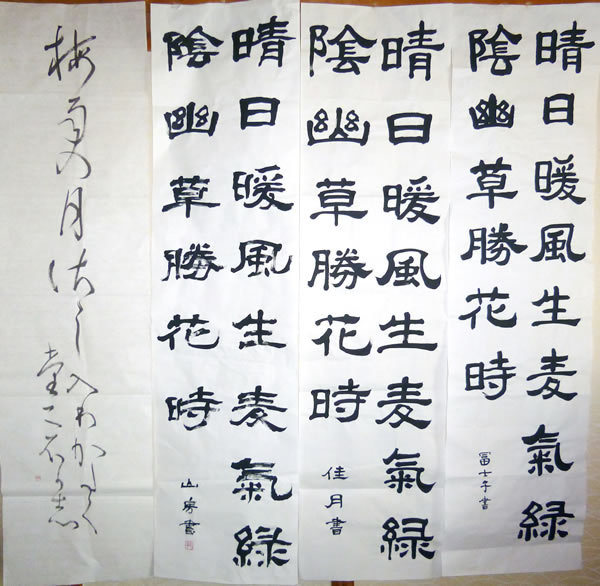 晴日暖風生麦氣緑
陰幽草勝花時
冨士子書
晴日暖風生麦氣緑
陰幽草勝花時
佳月書
晴日暖風生麦氣緑
陰幽草勝花時
山房書
梅雨の月